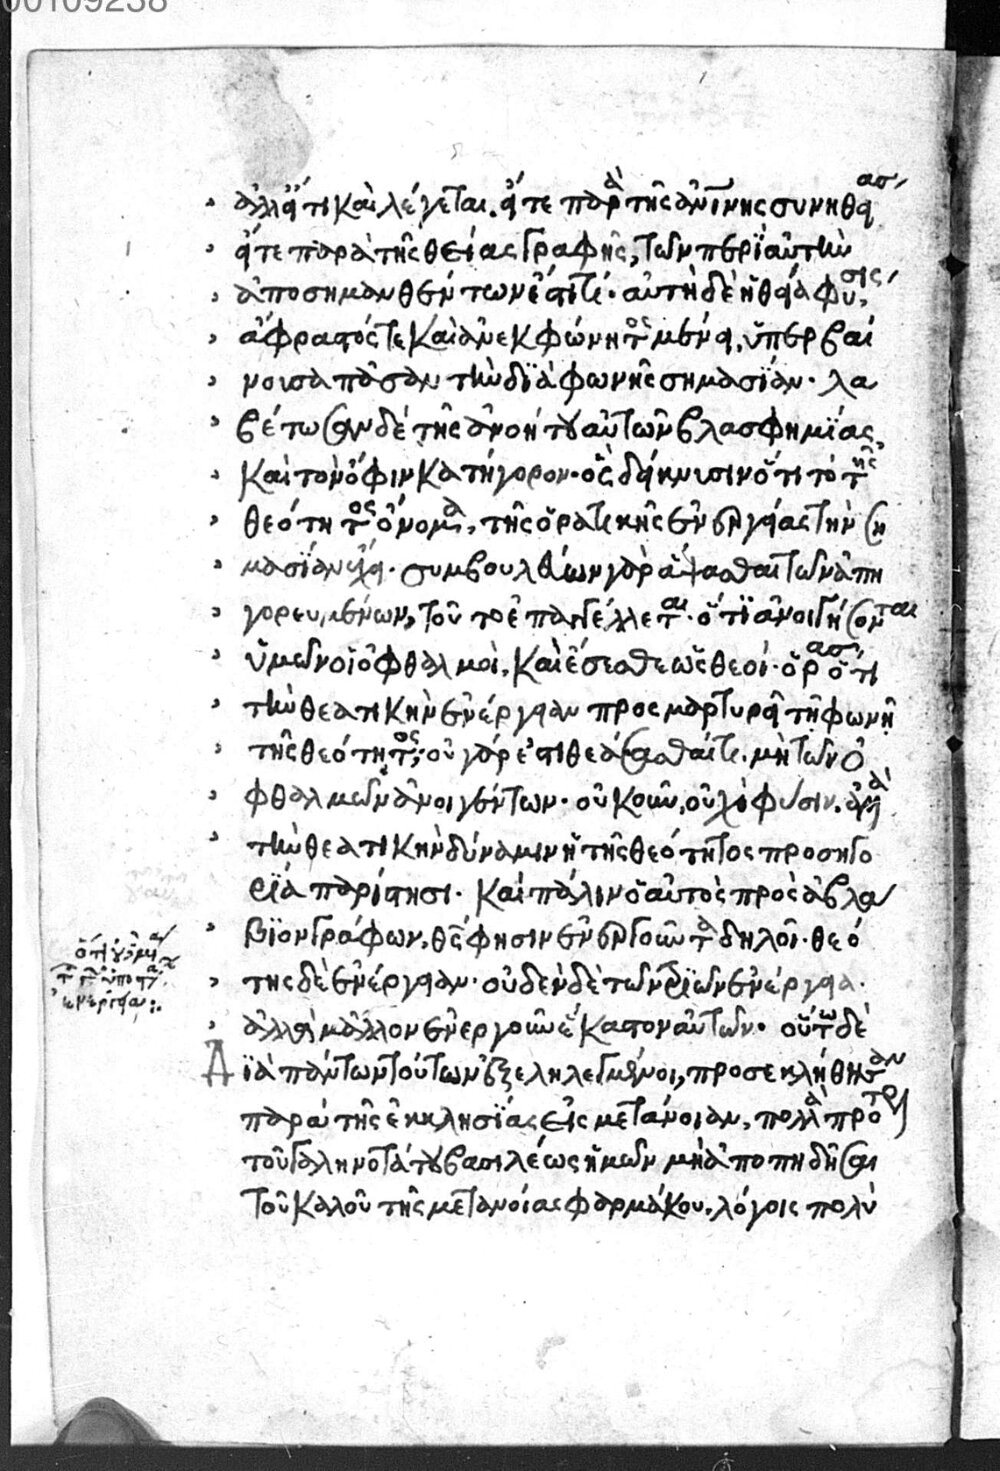 00109238
ἀλλ' εἴ τι καὶ λέγεται. εἴτε παρὰ τῆς ἀνίνης συνηθείας
εἴτε παρὰ τῆς θείας γραφῆς, τῶν περὶ αὐτὴν
ἀποσημανθέντων ἐστί τι· αὐτὴ δὲ ἡ θεία φύσις,
ἄφραστός τε καὶ ἀνεκφώνητος μένει, ὑπερβαί
νουσα πᾶσαν τὴν διὰ φωνῆς σημασίαν· λα
βέτωσαν δὲ τῆς ἀνοήτου αὐτῶν βλασφημίας,
καὶ τὸν ὄφιν κατήγορον· ὃς δείκνυσιν ὅτι τὸ τῆς
θεότητος ὄνομα, τῆς ὁρατικῆς ἐνεργείας τὴν ση
μασίαν ἔχει· συμβουλεύων γὰρ ἅψασθαι τῶν ἀπη
γορευμένων, τοῦτο ἐπαγγέλλεται· ὅτι ἀνοιγήσονται
ὑμῶν οἱ ὀφθαλμοί, καὶ ἔσεσθε ὡς θεοί· ὁρᾷς ὅτι
τὴν θεατικὴν ἐνέργειαν προσμαρτυρεῖ τῇ φωνῇ
τῆς θεότητος; οὐ γάρ ἐστι θεάσασθαί τι, μὴ τῶν ὀ
φθαλμῶν ἀνοιγέντων· οὐκοῦν, οὐχὶ φύσιν, ἀλλὰ
τὴν θεατικὴν δύναμιν ἡ τῆς θεότητος προσηγο
ρία παρίστησι· καὶ πάλιν ὁ αὐτὸς πρὸς ἀβλα
βίον γράφων, θς φησιν ἐνεργοῦντα δηλοῖ· θεό
της δὲ ἐνέργειαν· οὐδὲν δὲ τῶν τριῶν ἐνέργεια·
ἀλλὰ μᾶλλον ἐνεργοῦν ἕκαστον αὐτῶν· οὕτω δὲ
Διὰ πάντων τούτων ἐξεληλεγμένοι, προσεκλήθησαν
παρὰ τῆς ἐκκλησίας εἰς μετάνοιαν, πολλὰ προτρ
τοῦ γαληνοτάτου βασιλέως ἡμῶν μὴ ἀποπηδῆσαι
τοῦ καλοῦ τῆς μετανοίας φαρμάκου, λόγοις πολὺ